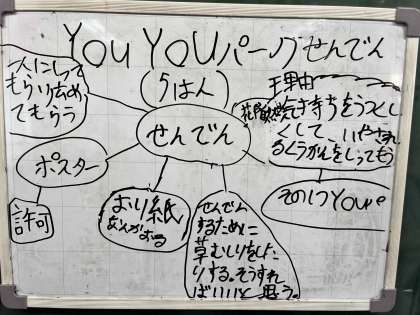 YOUYOUパークせんでん
(5はん)
人にしって
もらい広め
てもらう
せんでん
ポスター
許可
おり紙
せんでん
するために
草むしりをした
りする。そうすれ
ばいいと思う。
理由
気持ちをうつくし
くして、いやされ
るくうかんをしってもら